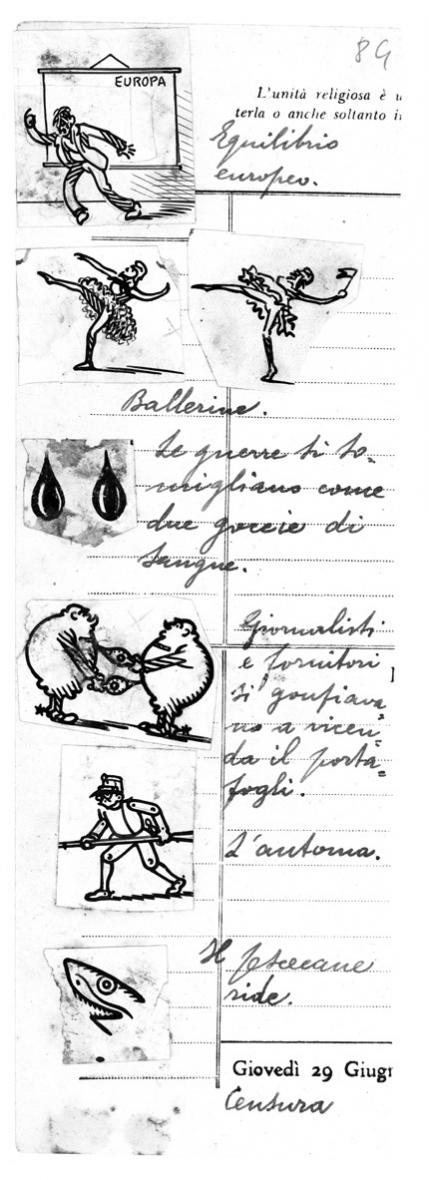 89
EUROPA
L'unità religiosa è u
terla o anche soltanto i
Equilibrio
europeo.
Ballerine.
Le guerre si so-
migliano come
due goccie di
sangue.
Giornalisti
e fornitori
si gonfiava
no a vicen
da il porta=
fogli.
L'automa.
Il pescecane
ride.
Giovedì 29 Giug
Censura